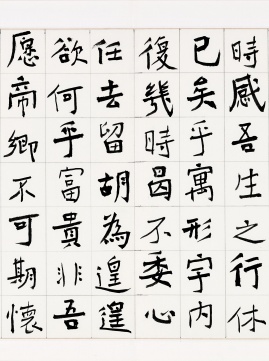 時感吾生之行休
已矣乎寓形宇内
復幾時曷不委心
任去留胡為遑遑
欲何乎富貴非吾
愿帝鄉不可期懷